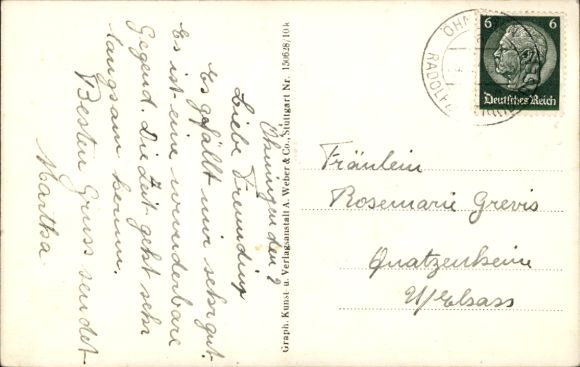 Öhningen den 9
Liebe Freundin
Es gefällt mir sehr gut.
Es ist eine wunderbare
Gegend. Die Zeit geht sehr
langsam herum.
Besten Gruss sendet
Martha
Graph. Kunst- u. Verlagsanstalt A. Weber & Co., Stuttgart Nr. 150628/10 k
ÖHN
RADOLF
6 6
Deutsches Reich
Fräulein
Rosemarie Grevis
Quatzenheim
U/Elsass